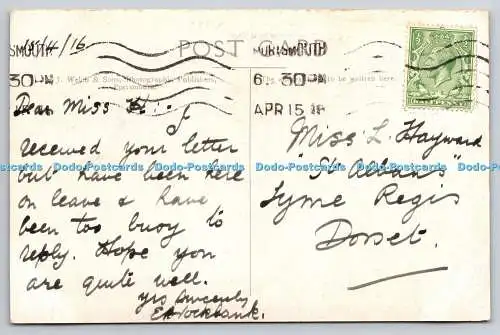 15/4/16
POST CARD
SMOUTH
30 PM
6. 30 PM
APR 15
J. Welch & Sons, Photographic Publishers,
Portsmouth
to be written here.
Dear Miss H. I
received your letter
but have been here
on leave & have
been too busy to
reply. Hope you
are quite well.
yrs sincerely
Miss L. Hayward
"St Albans"
Lyme Regis
Dorset.
Dodo-Postcards Dodo-Postcards Dodo-Postcards Dodo-Postcards